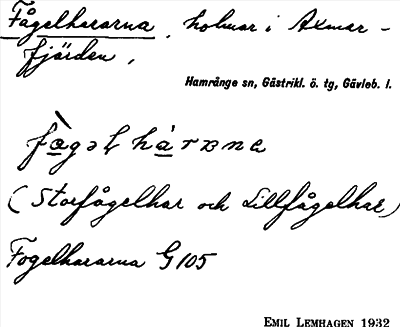 Fågelhararna, holmar i Axmar-
fjärden,
Hamrånge sn, Gästrikl. ö. tg, Gävleb. l.
fo̖gəl hàrɐna
(Storfågelhar och Lillfågelhar)
Fogelhararna G 105
EMIL LEMHAGEN 1932